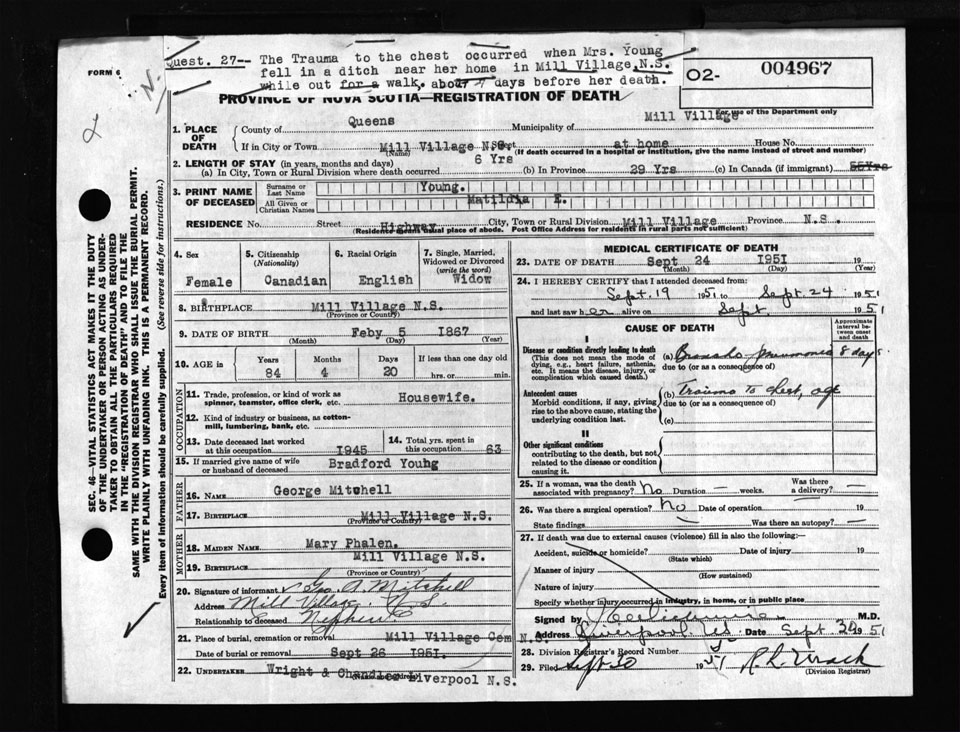 FORM 6
Quest. 27-- The Trauma to the chest occurred when Mrs. Young
fell in a ditch near her home in Mill Village N.S.
while out for a walk, about 7 days before her death.
O2- 004967
For use of the Department only
PROVINCE OF NOVA SCOTIA—REGISTRATION OF DEATH
1. PLACE OF DEATH
County of Queens Municipality of Mill Village
If in City or Town Mill Village N.S. (Name) Street at home House No.
(If death occurred in a hospital or institution, give the name instead of street and number)
2. LENGTH OF STAY (in years, months and days)
(a) In City, Town or Rural Division where death occurred 6 Yrs (b) In Province 29 Yrs (c) In Canada (if immigrant) 55Yrs
3. PRINT NAME OF DECEASED
Surname or Last Name Young.
All Given or Christian Names Matildia E.
RESIDENCE No. Street Highway City, Town or Rural Division Mill Village Province N.S.
(Residence means usual place of abode. Post Office Address for residents in rural parts not sufficient)
4. Sex Female
5. Citizenship (Nationality) Canadian
6. Racial Origin English
7. Single, Married, Widowed or Divorced (write the word) Widow
8. BIRTHPLACE Mill Village N.S.
(Province or Country)
9. DATE OF BIRTH Feby 5 1867
(Month) (Day) (Year)
10. AGE in Years Months Days If less than one day old
84 4 20 hrs. or min.
OCCUPATION
11. Trade, profession, or kind of work as spinner, teamster, office clerk, etc. Housewife.
12. Kind of industry or business, as cotton-mill, lumbering, bank, etc.
13. Date deceased last worked at this occupation 1945
14. Total yrs. spent in this occupation 63
15. If married give name of wife or husband of deceased Bradford Young
FATHER
16. NAME George Mitchell
17. BIRTHPLACE Mill Village N.S.
(Province or Country)
MOTHER
18. MAIDEN NAME Mary Phalen.
19. BIRTHPLACE Mill Village N.S.
(Province or Country)
20. Signature of informant Geo. A. Mitchell
Address Mill Village. N.S.
Relationship to deceased Nephew
21. Place of burial, cremation or removal Mill Village Cem N.S.
Date of burial or removal Sept 26 1951.
22. UNDERTAKER Wright & Chandler Liverpool N.S.
(Name and address)
MEDICAL CERTIFICATE OF DEATH
23. DATE OF DEATH Sept 24 1951 19
(Month) (Day) (Year)
24. I HEREBY CERTIFY that I attended deceased from:
Sept. 19 1951 to Sept. 24 1951
and last saw her alive on Sept. 1951
CAUSE OF DEATH
Approximate interval between onset and death
I
Disease or condition directly leading to death
(This does not mean the mode of dying, e.g., heart failure, asthenia, etc. It means the disease, injury, or complication which caused death.)
(a) Broncho-pneumonia 8 days
due to (or as a consequence of)
Antecedent causes
Morbid conditions, if any, giving rise to the above cause, stating the underlying condition last.
(b) Trauma to chest, age
due to (or as a consequence of)
(c)
II
Other significant conditions
contributing to the death, but not related to the disease or condition causing it.
25. If a woman, was the death associated with pregnancy? No Duration — weeks. Was there a delivery? —
26. Was there a surgical operation? No Date of operation 19
State findings — Was there an autopsy? —
27. If death was due to external causes (violence) fill in also the following:—
Accident, suicide or homicide? Date of injury 19
(State which)
Manner of injury
(How sustained)
Nature of injury
Specify whether injury occurred in industry, in home, or in public place
Signed by M.D.
Address Liverpool, N.S. Date Sept 30 1951
28. Division Registrar's Record Number
29. Filed Sept 30 1951
(Division Registrar)
SEC. 46—VITAL STATISTICS ACT MAKES IT THE DUTY
OF THE UNDERTAKER OR PERSON ACTING AS UNDER-
TAKER TO OBTAIN ALL THE PARTICULARS REQUIRED
IN THE "REGISTRATION OF DEATH" AND TO FILE THE
SAME WITH THE DIVISION REGISTRAR WHO SHALL ISSUE THE BURIAL PERMIT.
WRITE PLAINLY WITH UNFADING INK. THIS IS A PERMANENT RECORD.
Every item of information should be carefully supplied. (See reverse side for instructions.)